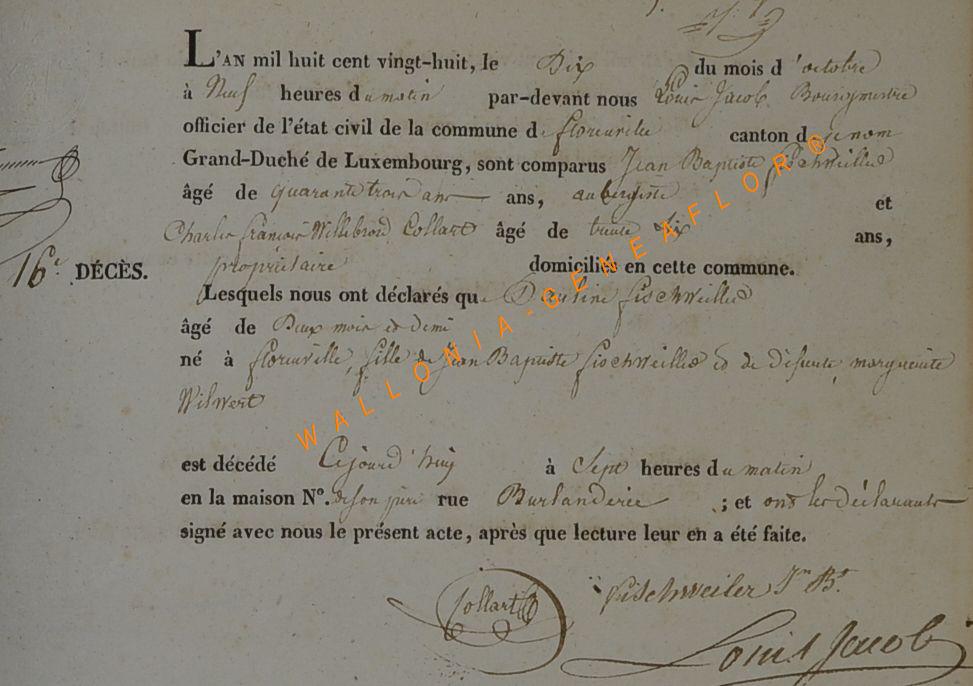 L'AN mil huit cent vingt-huit, le Dix du mois d'octobre
à Neuf heures du matin par-devant nous Louis Jacob Bourgmestre
officier de l'état civil de la commune de florenville canton de ce nom
Grand-Duché de Luxembourg, sont comparus Jean Baptiste fischweiller
âgé de quarante trois ans ans, aubergiste et
Charles françois Willibrord Collart âgé de trente six ans,
propriétaire domiciliés en cette commune.
16e DÉCÈS.
Lesquels nous ont déclarés que fischweiller
âgé de Deux mois et demi
né à florenville, fille de Jean Baptiste fischweiller et de défunte marguerite
Wilwert
est décédé Cejourd'huy à Sept heures du matin
en la maison N°. de son père rue ; et ont les déclarants
signé avec nous le présent acte, après que lecture leur en a été faite.
Collart fischweiler Jn Bt
Louis Jacob
WALLONIA-GENEAFLOR®